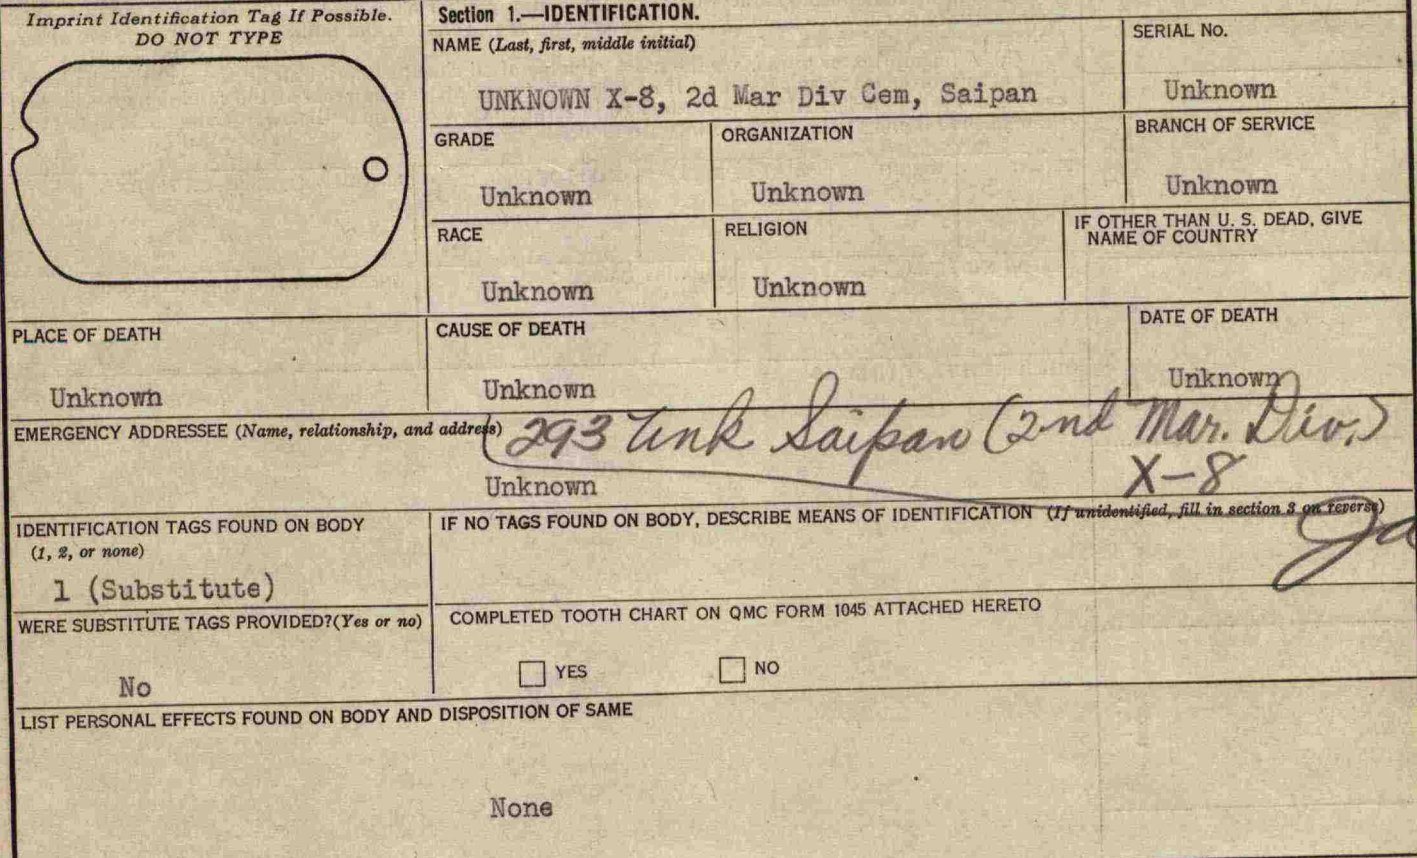 Imprint Identification Tag If Possible.
DO NOT TYPE
Section 1.—IDENTIFICATION.
NAME (Last, first, middle initial)
UNKNOWN X-8, 2d Mar Div Cem, Saipan
SERIAL No.
Unknown
GRADE
Unknown
ORGANIZATION
Unknown
BRANCH OF SERVICE
Unknown
RACE
Unknown
RELIGION
Unknown
IF OTHER THAN U. S. DEAD, GIVE
NAME OF COUNTRY
PLACE OF DEATH
Unknown
CAUSE OF DEATH
Unknown
DATE OF DEATH
Unknown
EMERGENCY ADDRESSEE (Name, relationship, and address)
293 Unk Saipan (2nd Mar. Div.)
X-8
Unknown
IDENTIFICATION TAGS FOUND ON BODY
(1, 2, or none)
1 (Substitute)
IF NO TAGS FOUND ON BODY, DESCRIBE MEANS OF IDENTIFICATION (If unidentified, fill in section 3 on reverse)
WERE SUBSTITUTE TAGS PROVIDED?(Yes or no)
No
COMPLETED TOOTH CHART ON QMC FORM 1045 ATTACHED HERETO
YES
NO
LIST PERSONAL EFFECTS FOUND ON BODY AND DISPOSITION OF SAME
None